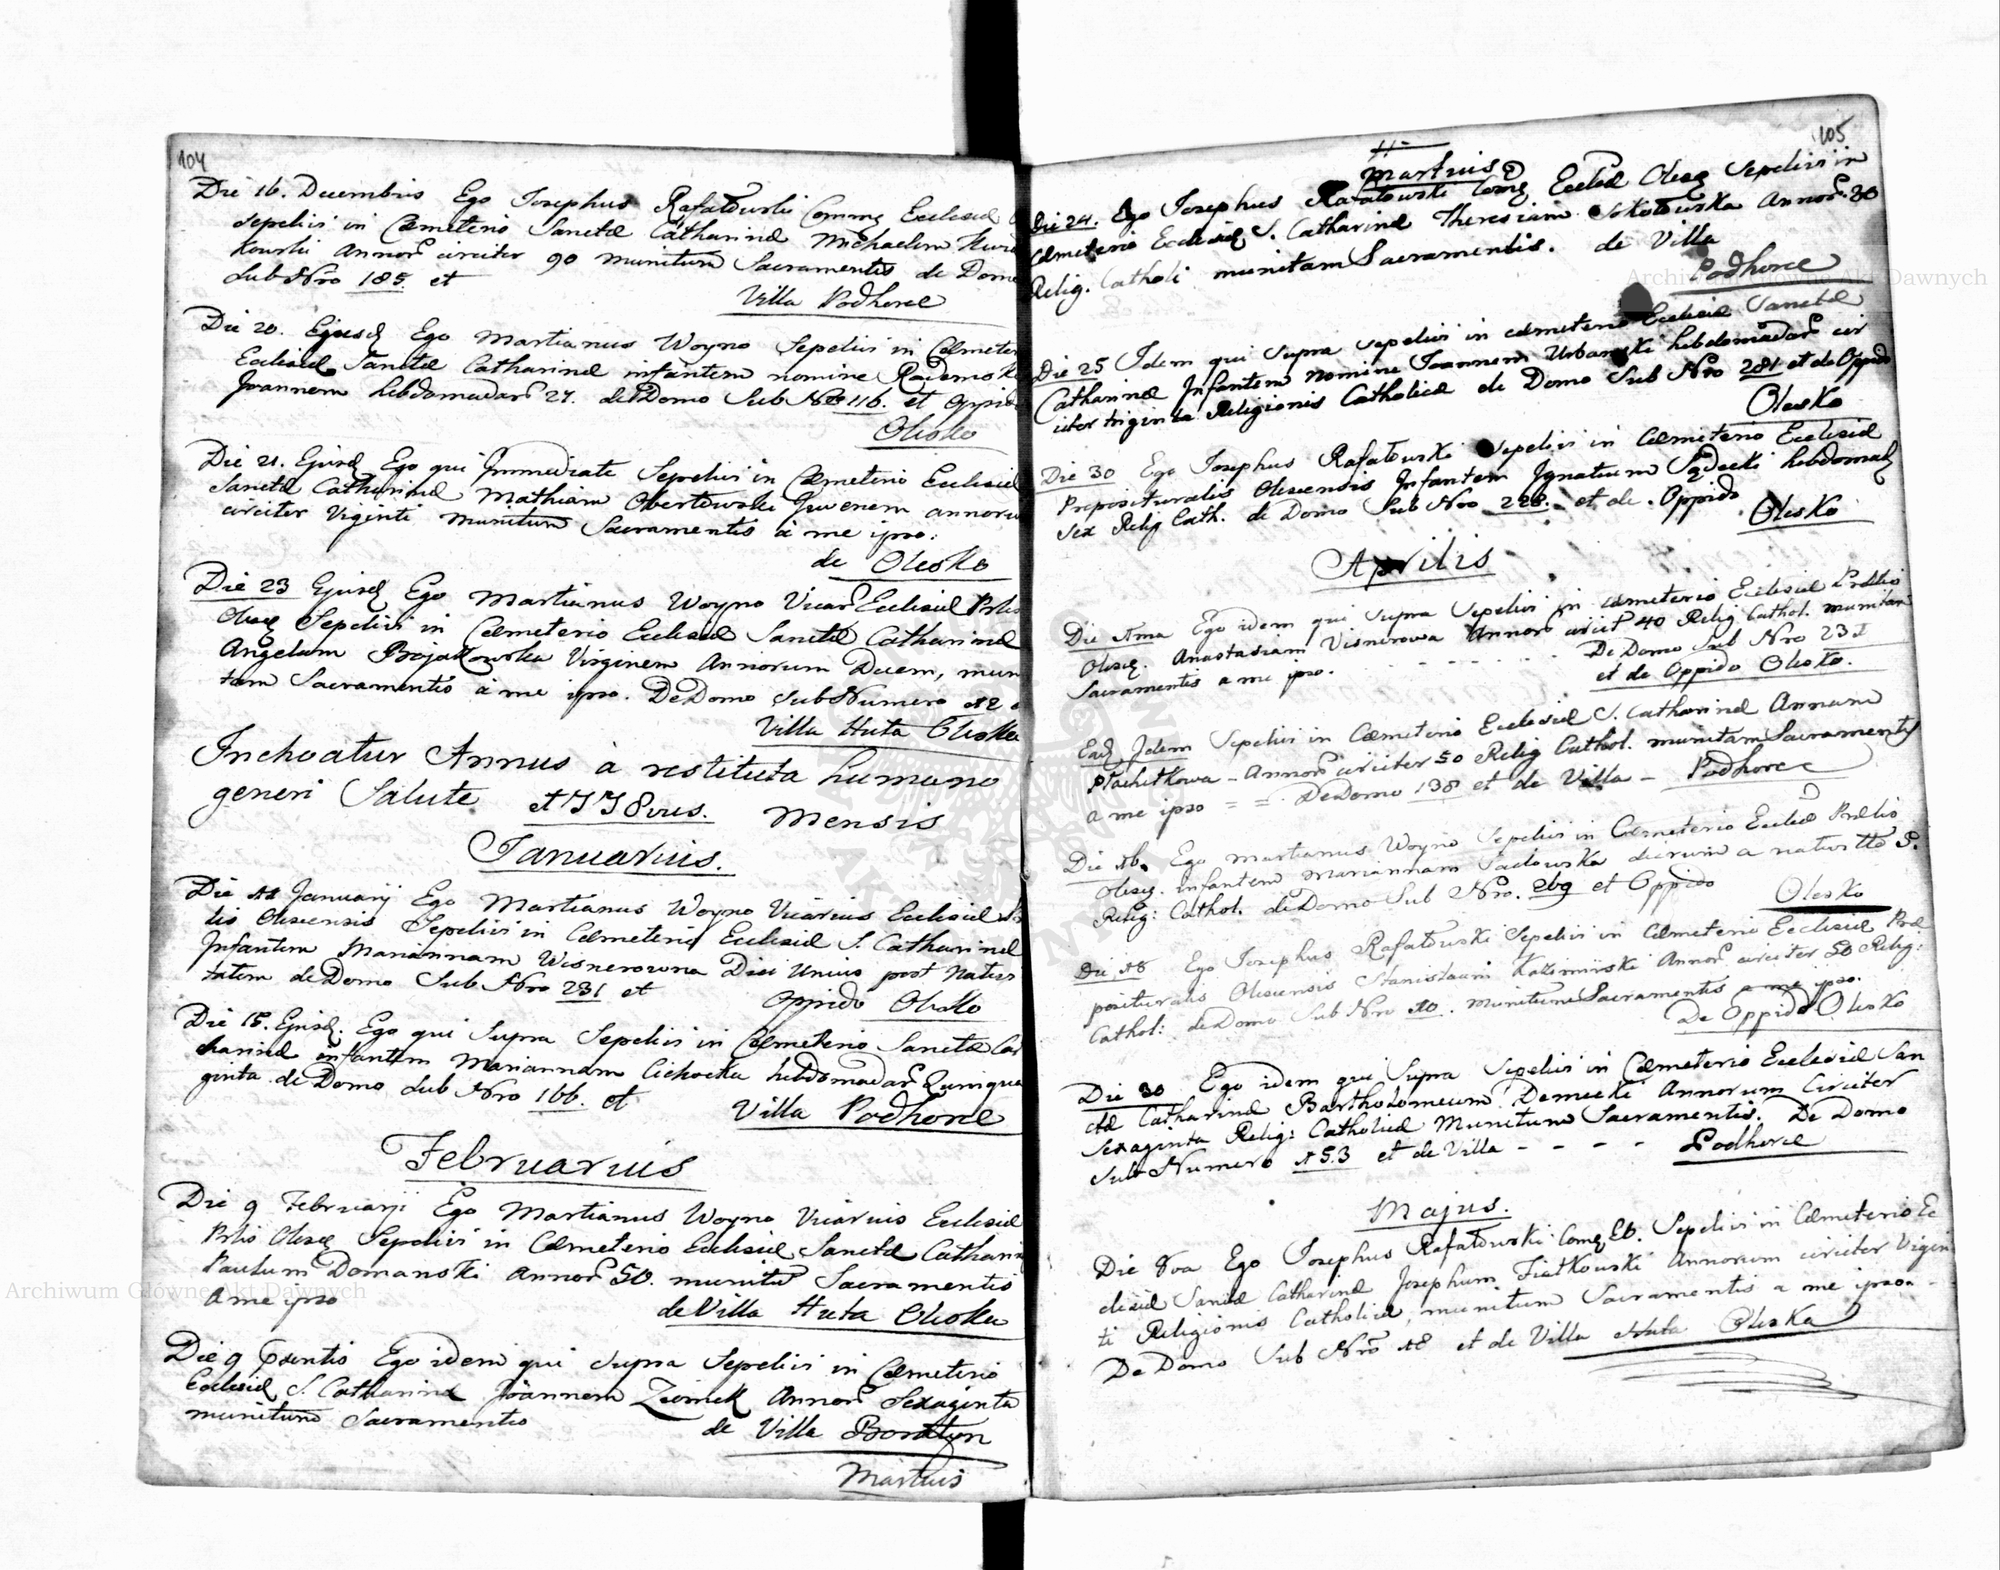 104
Die 16. Decembris Ego Josephus Rafałowski Comm͞ Ecclesiæ
sepelivi in Cæmeterio Sanctæ Catharinæ Michaelem
kowski Annor͞ circiter 90 munitum Sacramentis de Domo
Sub Nro 185 et
Villa Podhorce
Die 20. Ejusd Ego Martianus Woyno Sepelivi in Cæmeter
Ecclesiæ Sanctæ Catharinæ infantem nomine
Joannem hebdomadar͞ 27. de Domo Sub Nro 116. et Oppido
Olesko
Die 21. Ejusd Ego qui Immediate Sepelivi in Cæmeterio Ecclesiæ
Sanctæ Catharinæ Mathiam Obertowski Juvenem annoru
circiter Viginti munitum Sacramentis à me ipso.
de Olesko
Die 23 Ejusd Ego Martianus Woyno Vicar͞ Ecclesiæ Prlis
Olesc Sepelivi in Cæmeterio Ecclesiæ Sanctæ Catharinæ
Angelam Virginem Annorum Decem, muni
tam Sacramentis à me ipso. De Domo Sub Numero 12
Villa Huta Oleska
Inchoatur Annus à restituta humano
generi Salute 1778vus. Mensis
Januarius.
Die 11 Januarij Ego Martianus Woyno Vicarius Ecclesiæ
lis Olescensis Sepelivi in Cæmeterio Ecclesiæ S. Catharinæ
Infantem Mariannam Wisnerowna Diei Unius post nativi
tatem de Domo Sub Nro 231 et Oppido Olesko
Die 15. Ejusd. Ego qui Supra Sepelivi in Cæmeterio Sanctæ Cat
harinæ infantem Mariannam Cichocka hebdomadar͞ Quinqua
ginta de Domo Sub Nro 166. et
Villa Podhorce
Februarius
Die 9 Februarij Ego Martianus Woyno Vicarius Ecclesiæ
Prlis Olesc Sepelivi in Cæmeterio Ecclesiæ Sanctæ Catharin
Paulum Domanski Annor͞ 50. munitu͞ Sacramentis
a me ipso de Villa Huta Oleska
Die 9 Præsentis Ego idem qui Supra Sepelivi in Cæmeterio
Ecclesiæ S. Catharinæ Joannem Ziomek Annor͞ Sexaginta
munitum Sacramentis de Villa
Martius
105
Martius
Die 24. Ego Josephus Rafałowski Com͞ Eccliæ Olesc Sepelivi in
Cæmeterio Ecclesiæ S. Catharinæ Theresiam Sokołowska Annor͞ 30
Relig. Catholi munitam Sacramentis. de Villa
Podhorce
Die 25 Idem qui Supra sepelivi in cæmeterio Ecclesiæ Sanctæ
Catharinæ Infantem nomine Joannem Urbanski hebdomadar͞ cir
citer triginta Religionis Catholicæ de Domo Sub Nro 281 et de Oppido
Olesko
Die 30 Ego Josephus Rafałowski Sepelivi in Cæmeterio Ecclesiæ
Præposituralis Olescensis Infantem Ignatium hebdomad
Sex Relig Cath. de Domo Sub Nro 228. et de Oppido
Olesko
Aprilis
Die 1ma Ego idem qui Supra Sepelivi in cæmeterio Ecclesiæ Prælis
Olesc. Anastasiam Visnerowa Annor͞ circit 40 Relig Cathol. munitam
Sacramentis a me ipso. De Domo Sub Nro 231
et de Oppido Olesko.
Ead Idem Sepelivi in Cæmeterio Ecclesiæ S. Catharinæ Annam
Annor͞ circiter 50 Relig Cathol. munitam Sacramentis
a me ipso = = De Domo 138 et de Villa – Podhorce
Die 16. Ego Martianus Woyno Sepelivi in Cæmeterio Eccliæ Prælis
Olesc. infantem Mariannam dierum a nativtte 5.
Relig: Cathol. de Domo Sub Nro. 269 et Oppido Olesko
Die 18 Ego Josephus Rafałowski Sepelivi in Cæmeterio Ecclesiæ Præ
posituralis Olescensis Stanislaum Annor͞ circiter 50 Relig:
Cathol: de Domo Sub Nro 10. munitum Sacramentis a me ipso.
De Oppido Olesko
Die 30 Ego idem qui Supra Sepelivi in Cæmeterio Ecclesiæ San
ctæ Catharinæ Bartholomeum Annorum Circiter
Sexaginta Relig: Catholicæ Munitum Sacramentis. De Domo
Sub Numero 153 et de Villa - - - - Podhorce
Majus.
Die 8va Ego Josephus Rafałowski Com͞ Sepelivi in Cæmeterio Ec
clesiæ Sanctæ Catharinæ Josephum Fiatkowski Annorum circiter Vigin
ti Religionis Catholicæ, munitum Sacramentis a me ipso -
De Domo Sub Nro 18 et de Villa Huta Oleska
Archiwum Główne Akt Dawnych
Archiwum Główne Akt Dawnych